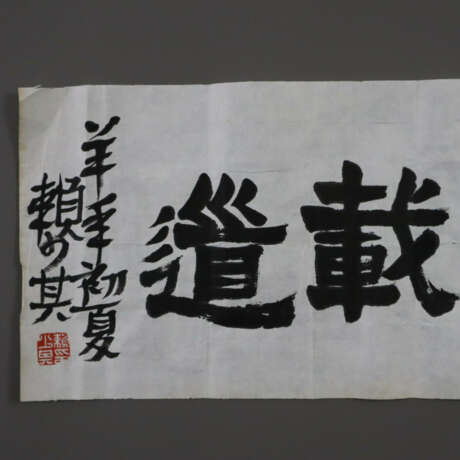 載道
羊年初夏
賴少其